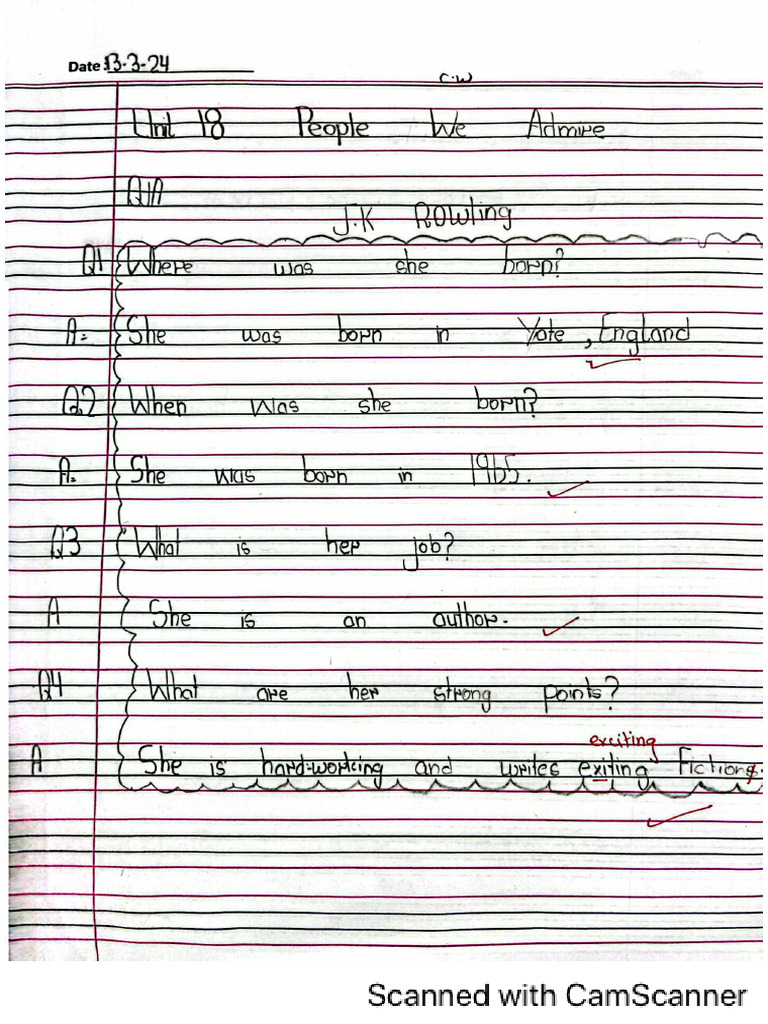 Date: 13-3-24
C.W
Unit 18 People We Admire
Q1A
J.K Rowling
Q1 Where was she born?
A= She was born in Yate, England
Q2 When was she born?
A= She was born in 1965.
Q3 What is her job?
A She is an author.
Q4 What are her strong points?
exciting
A She is hard-working and writes exiting Fictions.
Scanned with CamScanner